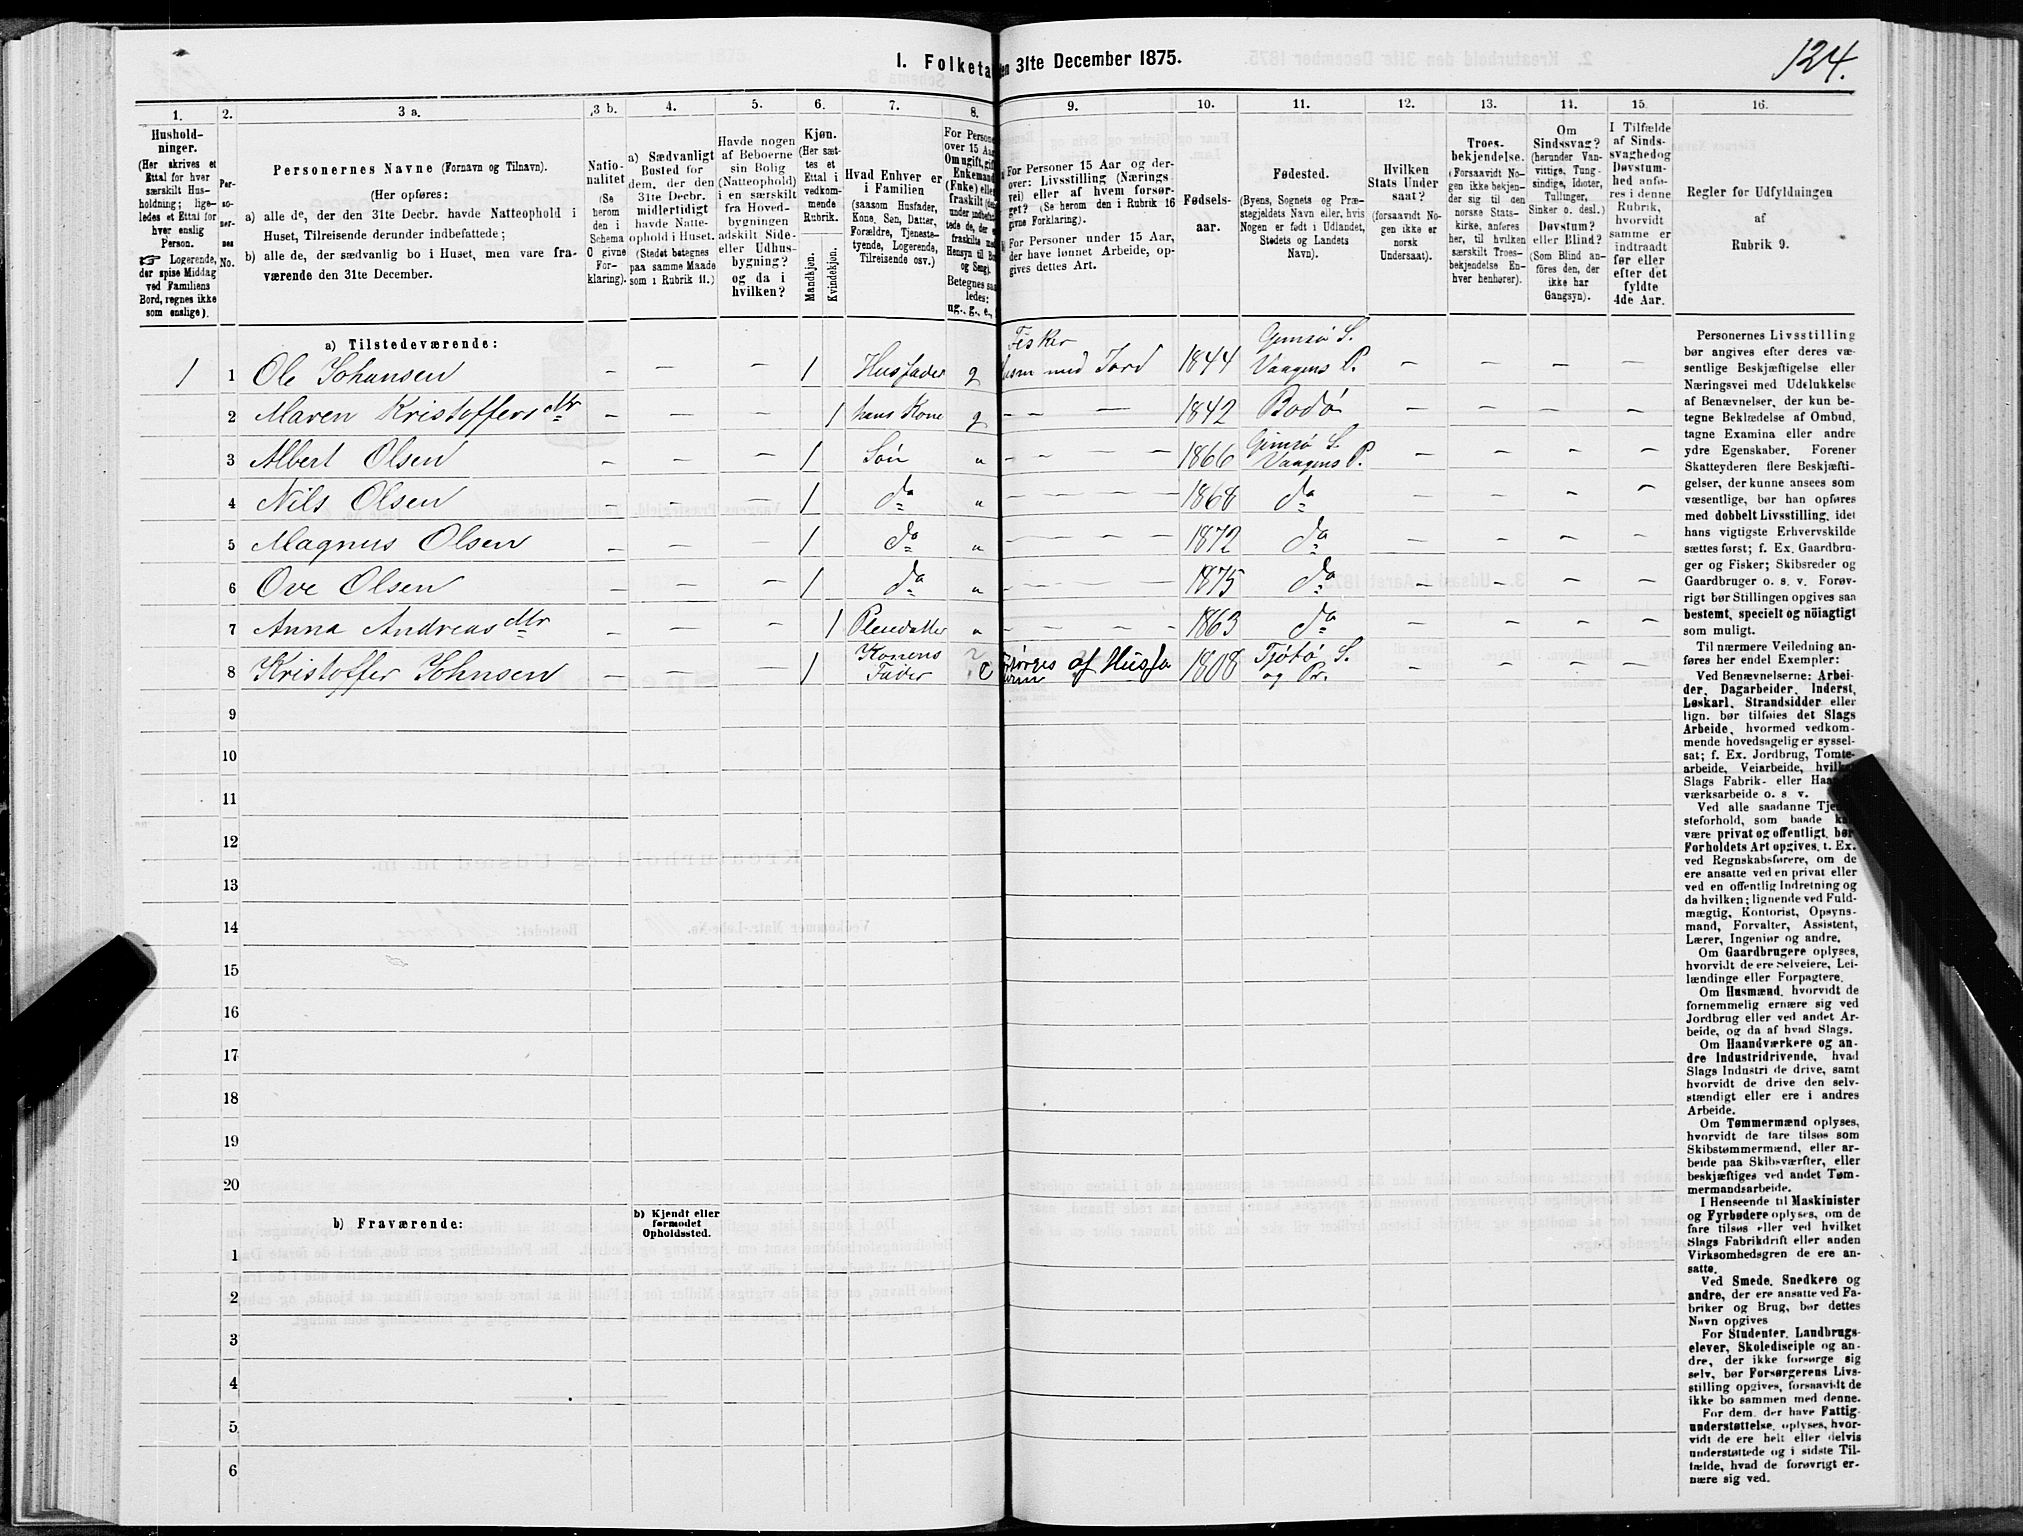 124.
I. Folketa
en 31te December 1875.
1.
2.
3 a.
3 b.
4.
5.
6.
7.
8.
9.
10.
11.
12.
13.
14.
15.
16.
Hushold-
ninger.
(Her skrives et
Ettal for hver
særskilt Hus-
holdning; lige-
ledes et Ettal for
hver enslig
Person.
☞ Logerende,
der spise Middag
ved Familiens
Bord, regnes ikke
som enslige).
Per-
so-
ner-
nes
No.
Personernes Navne (Fornavn og Tilnavn).
(Her opføres:
a) alle de, der den 31te Decbr. havde Natteophold i
Huset, Tilreisende derunder indbefattede;
b) alle de, der sædvanlig bo i Huset, men vare fra-
værende den 31te December.
Natio-
nalitet
(Se
herom
den i
Schema
O givne
For-
klaring).
a) Sædvanligt
Bosted for
dem, der den
31te Decbr.
midlertidigt
havde Natte-
ophold i Huset.
(Stedet betegnes
paa samme Maade
som i Rubrik 11.)
Havde nogen
af Beboerne
sin Bolig
(Natteophold)
i en særskilt
fra Hoved-
bygningen
adskilt Side-
eller Udhus-
bygning?
og da i
hvilken?
Kjøn.
(Her sæt-
tes et
Ettal i
vedkom-
mende
Rubrik.
Mandkjøn.
Kvindekjøn.
Hvad Enhver er
i Familien
(saasom Husfader,
Kone, Søn, Datter,
Forældre, Tjeneste-
tyende, Logerende,
Tilreisende osv.)
For Persone
over 15 Aar
Om ugift, gift,
Enkemand
(Enke) eller
fraskilt
Betegnes saa-
ledes:
ug., g., e.,
For Personer 15 Aar og der-
over: Livsstilling (Nærings-
vei) eller af hvem forsør-
get? (Se herom den i Rubrik 16
givne Forklaring).
For Personer under 15 Aar,
der have lønnet Arbeide, op-
gives dettes Art.
Fødsels-
aar.
Fødested.
(Byens, Sognets og Præ-
stegjeldets Navn eller, hvis
Nogen er født i Udlandet,
Stedets og Landets
Navn).
Hvilken
Stats Under-
saat?
(forsaavidt No-
gen ikke er
norsk
Undersaat).
Troes-
bekjendelse.
(Forsaavidt No-
gen ikke bekjen-
der sig til den
norske Stats-
kirke, anføres
her, til hvilken
særskilt Troes-
bekjendelse En-
hver henhører).
Om
Sindssvag?
(herunder Van-
vittige, Tung-
sindige, Idioter,
Tullinger,
Sinker o. desl.)
Døvstum?
eller Blind?
(Som Blind an-
føres den, der
ikke har
Gangsyn).
I Tilfælde
af Sinds-
svaghed og
Døvstum-
hed anfø-
res i denne
Rubrik,
hvorvidt
samme er
indtraadt
før eller
efter det
fyldte
4de Aar.
Regler for Udfyldningen
af
Rubrik 9.
a) Tilstedeværende:
1 1 Ole Johansen – – – 1 Husfader g Fisker med Jord 1844 Gimsø S. Vaagens P. – – – –
2 Maren Kristoffersdtr – – – 1 hans Kone g – – 1842 Bodø – – – –
3 Albert Olsen – – – 1 Søn " – – 1866 Gimsø S. Vaagens P. – – – –
4 Nils Olsen – – – 1 do " – – 1868 do – – – –
5 Magnus Olsen – – – 1 do " – – 1872 do – – – –
6 Ove Olsen – – – 1 do " – – 1875 do – – – –
7 Anna Andreasdtr – – – 1 Pleiedatter " – – 1863 do – – – –
8 Kristoffer Johnsen – – – 1 Konens Fader e af Husfa 1808 Tjøtø S. og Pr. – – – –
9
10
11
12
13
14
15
16
17
18
19
20
b) Fraværende:
b) Kjendt eller
formodet
Opholdssted.
1
2
3
4
5
6
Personernes Livsstilling
bør angives efter deres væ-
sentlige Beskjæftigelse eller
Næringsvei med Udelukkelse
af Benævnelser, der kun be-
tegne Beklædelse af Ombud,
tagne Examina eller andre
ydre Egenskaber. Forener
Skatteyderen flere Beskjæfti-
gelser, der kunne ansees som
væsentlige, bør han opføres
med dobbelt Livsstilling, idet
hans vigtigste Erhvervskilde
sættes først; f. Ex. Gaardbru-
ger og Fisker; Skibsreder og
Gaardbruger o. s. v. Forøv-
rigt bør Stillingen opgives saa
bestemt, specielt og nöiagtigt
som muligt.
Til nærmere Veiledning an-
føres her endel Exempler:
Ved Benævnelserne: Arbei-
der, Dagarbeider, Inderst,
Løskarl, Strandsidder eller
lign. bør tilføies det Slags
Arbeide, hvormed vedkom-
mende hovedsagelig er syssel-
sat; f. Ex. Jordbrug, Tomte-
arbeide, Veiarbeide, hvilket
Slags Fabrik- eller Haand-
værksarbeide o. s. v.
Ved alle saadanne Tjene-
steforhold, som baade kan
være privat og offentligt, bør
Forholdets Art opgives, t. Ex.
ved Regnskabsførere, om de
ere ansatte ved en privat eller
ved en offentlig Indretning og
da hvilken; lignende ved Fuld-
mægtig, Kontorist, Opsyns-
mand, Forvalter, Assistent,
Lærer, Ingeniør og andre.
Om Gaardbrugere oplyses,
hvorvidt de ere Selveiere, Lei-
lændinge eller Forpagtere.
Om Husmænd, hvorvidt de
fornemmelig ernære sig ved
Jordbrug eller ved andet Ar-
beide, og da af hvad Slags.
Om Haandværkere og an-
dre Industridrivende, hvad
Slags Industri de drive, samt
hvorvidt de drive den selv-
stændigt eller ere i andres
Arbeide.
Om Tømmermænd oplyses,
hvorvidt de fare tilsøs som
Skibstømmermænd, eller ar-
beide paa Skibsværfter, eller
beskjæftiges ved andet Tøm-
mermandsarbeide.
I Henseende til Maskinister
og Fyrbødere oplyses, om de
fare tilsøs eller ved hvilket
Slags Fabrikdrift eller anden
Virksomhedsgren de ere an-
satte.
Ved Smede, Snedkere og
andre, der ere ansatte ved Fa-
briker og Brug, bør dettes
Navn opgives
For Studenter, Landbrugs-
elever, Skoledisciple og an-
dre, der ikke forsørge sig
selv, bør Forsørgerens Livs-
stilling opgives, forsaavidt de
ikke bo sammen med denne.
For dem, der have Fattig-
understøttelse, oplyses, hvor-
vidt de ere helt eller delvis
understøttede og i sidste Til-
fælde, hvad de forøvrigt er-
nære sig ved.